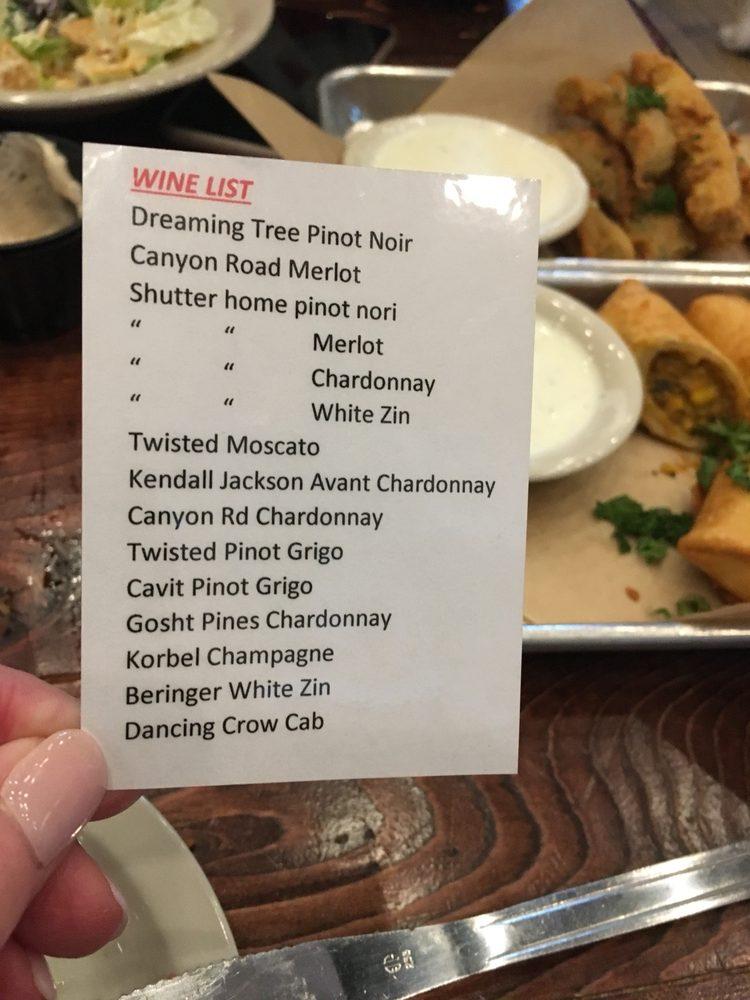 WINE LIST
Dreaming Tree Pinot Noir
Canyon Road Merlot
Shutter home pinot nori
“ “ Merlot
“ “ Chardonnay
“ “ White Zin
Twisted Moscato
Kendall Jackson Avant Chardonnay
Canyon Rd Chardonnay
Twisted Pinot Grigo
Cavit Pinot Grigo
Gosht Pines Chardonnay
Korbel Champagne
Beringer White Zin
Dancing Crow Cab